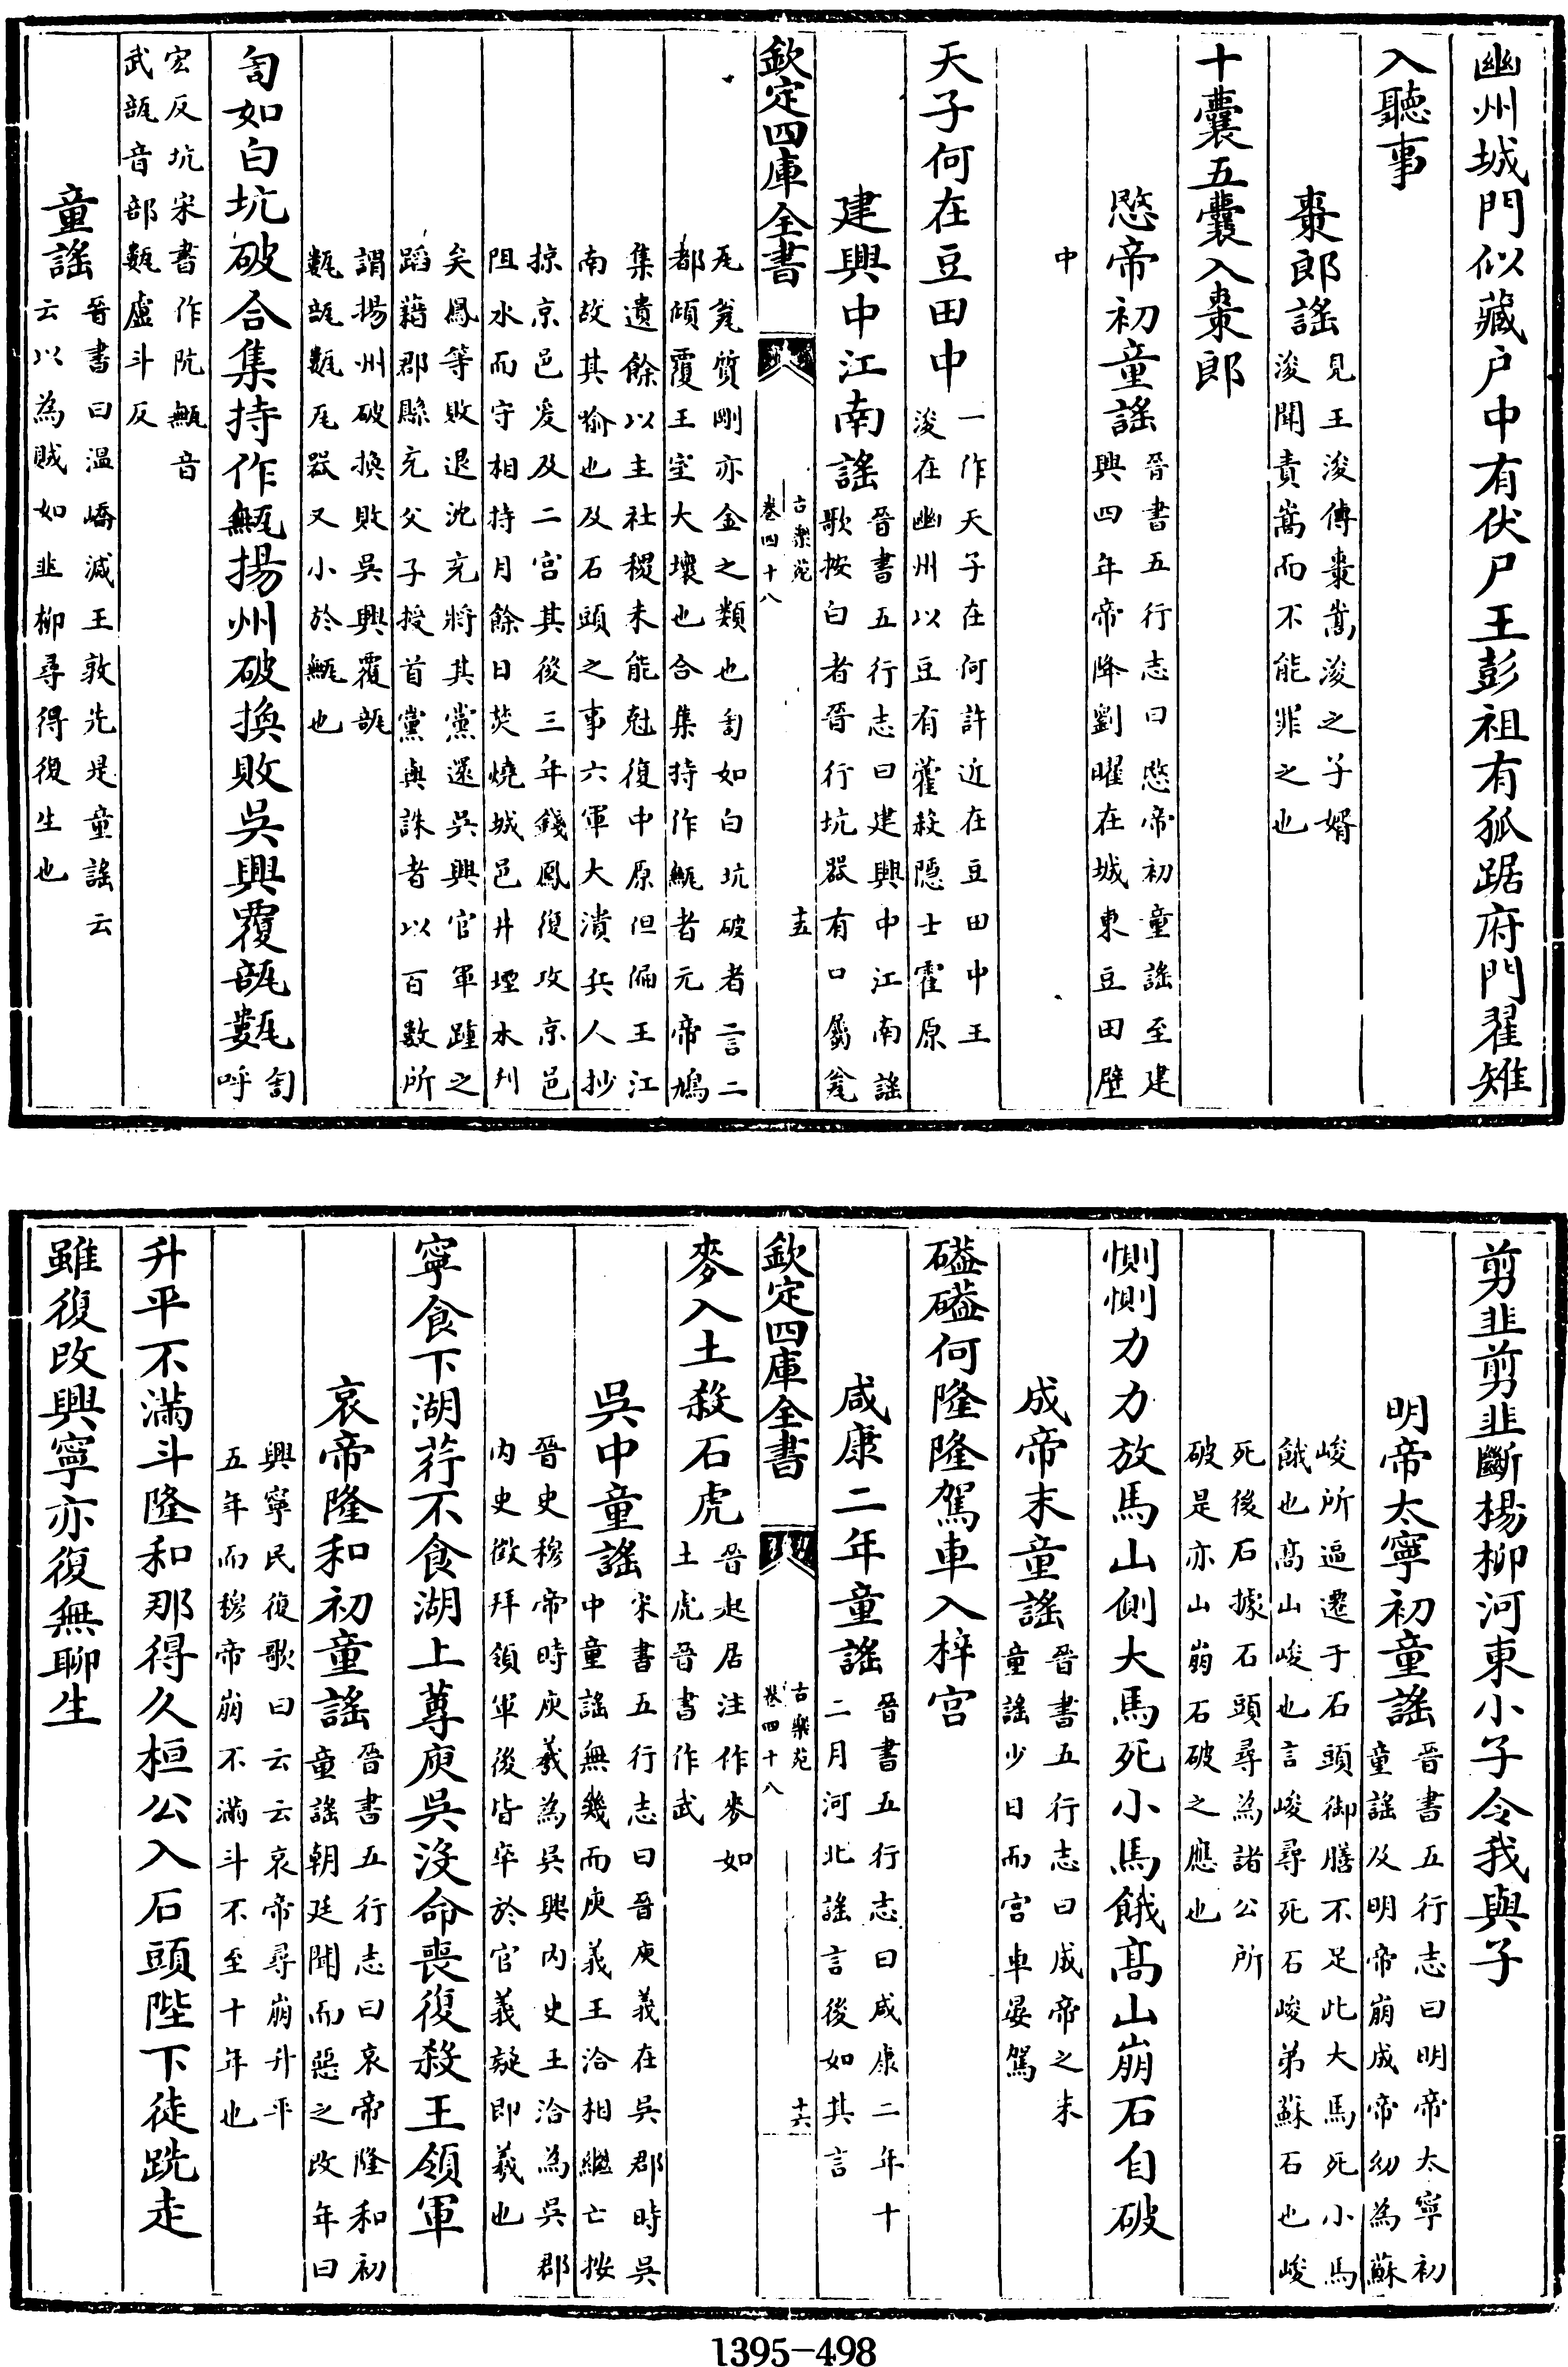 幽州城門似藏户中有伏尸王彭祖有狐踞府門翟雉
入聽事
棗郎謡見王浚傳棗嵩浚之子婿
浚聞責嵩而不能罪之也
十囊五囊入棗郎
愍帝初童謡晉書五行志曰愍帝初童謡至建
興四年帝降劉曜在城東豆田壁
中
天子何在豆田中一作天子在何許近在豆田中王
浚在幽州以豆有藿殺隠士霍原
建興中江南謡晉書五行志曰建興中江南謡
歌按白者晉行坑器有口屬瓮
欽定四庫全書
古樂苑
卷四十八
十五
瓦瓮質剛亦金之類也訇如白坑破者言二
都傾覆王室大壞也合集持作甒者元帝鳩
集遺餘以主社稷未能尅復中原但偏王江
南故其喻也及石頭之事六軍大潰兵人抄
掠京邑爰及二宫其後三年錢鳳復攻京邑
阻水而守相持月餘日焚燒城邑井堙木刋
矣鳳等敗退沈充將其黨還吳興官軍踵之
蹈藉郡縣充父子授首黨與誅者以百數所
謂揚州破換敗吳興覆瓿
甊瓿甊瓦器又小於甒也
訇如白坑破合集持作甒揚州破換敗吳興覆瓿甊訇
呼
宏反坑宋書作阬甒音
武瓿音部甊盧斗反
童謡晉書曰温嶠滅王敦先是童謡云
云以為賊如韭柳尋得復生也
剪韭剪韭斷楊柳河東小子令我與子
明帝太寧初童謡晉書五行志曰明帝太寧初
童謡及明帝崩成帝幼為蘇
峻所逼遷于石頭御膳不足此大馬死小馬
餓也髙山峻也言峻尋死石峻弟蘇石也峻
死後石據石頭尋為諸公所
破是亦山崩石破之應也
惻惻力力放馬山側大馬死小馬餓髙山崩石自破
成帝末童謡晉書五行志曰成帝之末
童謡少日而宫車晏駕
磕磕何隆隆駕車入梓宫
咸康二年童謡晉書五行志曰咸康二年十
二月河北謡言後如其言
欽定四庫全書
古樂苑
卷四十八
十六
麥入土殺石虎晉起居注作麥如
土虎晉書作武
吳中童謡宋書五行志曰晉庾義在吳郡時吳
中童謡無幾而庾義王洽相繼亡按
晉史穆帝時庾羲為吳興内史王洽為吳郡
内史徵拜領軍後皆卒於官義疑即羲也
寧食下湖荇不食湖上蓴庾吳沒命喪復殺王領軍
哀帝隆和初童謡晉書五行志曰哀帝隆和初
童謡朝廷聞而惡之改年曰
興寧民復歌曰云云哀帝尋崩升平
五年而穆帝崩不滿斗不至十年也
升平不滿斗隆和那得久桓公入石頭陛下徒跣走
雖復改興寧亦復無聊生
1395-498